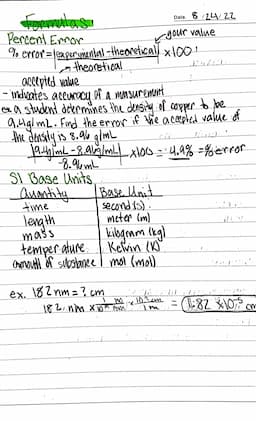 Date 8/24/22
Formulas
Percent Error
your value
% error = |experimental - theoretical| x100
theoretical
accepted value
- indicates accuracy of a measurement
ex. a student determines the density of copper to be
9.4g/mL. Find the error if the accepted value of
the density is 8.96 g/mL
|9.4g/mL - 8.96g/mL| x100 = 4.9% = % error
8.96mL
SI Base Units
Quantity Base Unit
time second (s)
length meter (m)
mass kilogram (kg)
temperature Kelvin (K)
amount of substance mol (mol)
ex. 182nm = ? cm
182 nm x 1 m x 10² cm = 1.82 x10⁻⁵ cm
nm 1 m